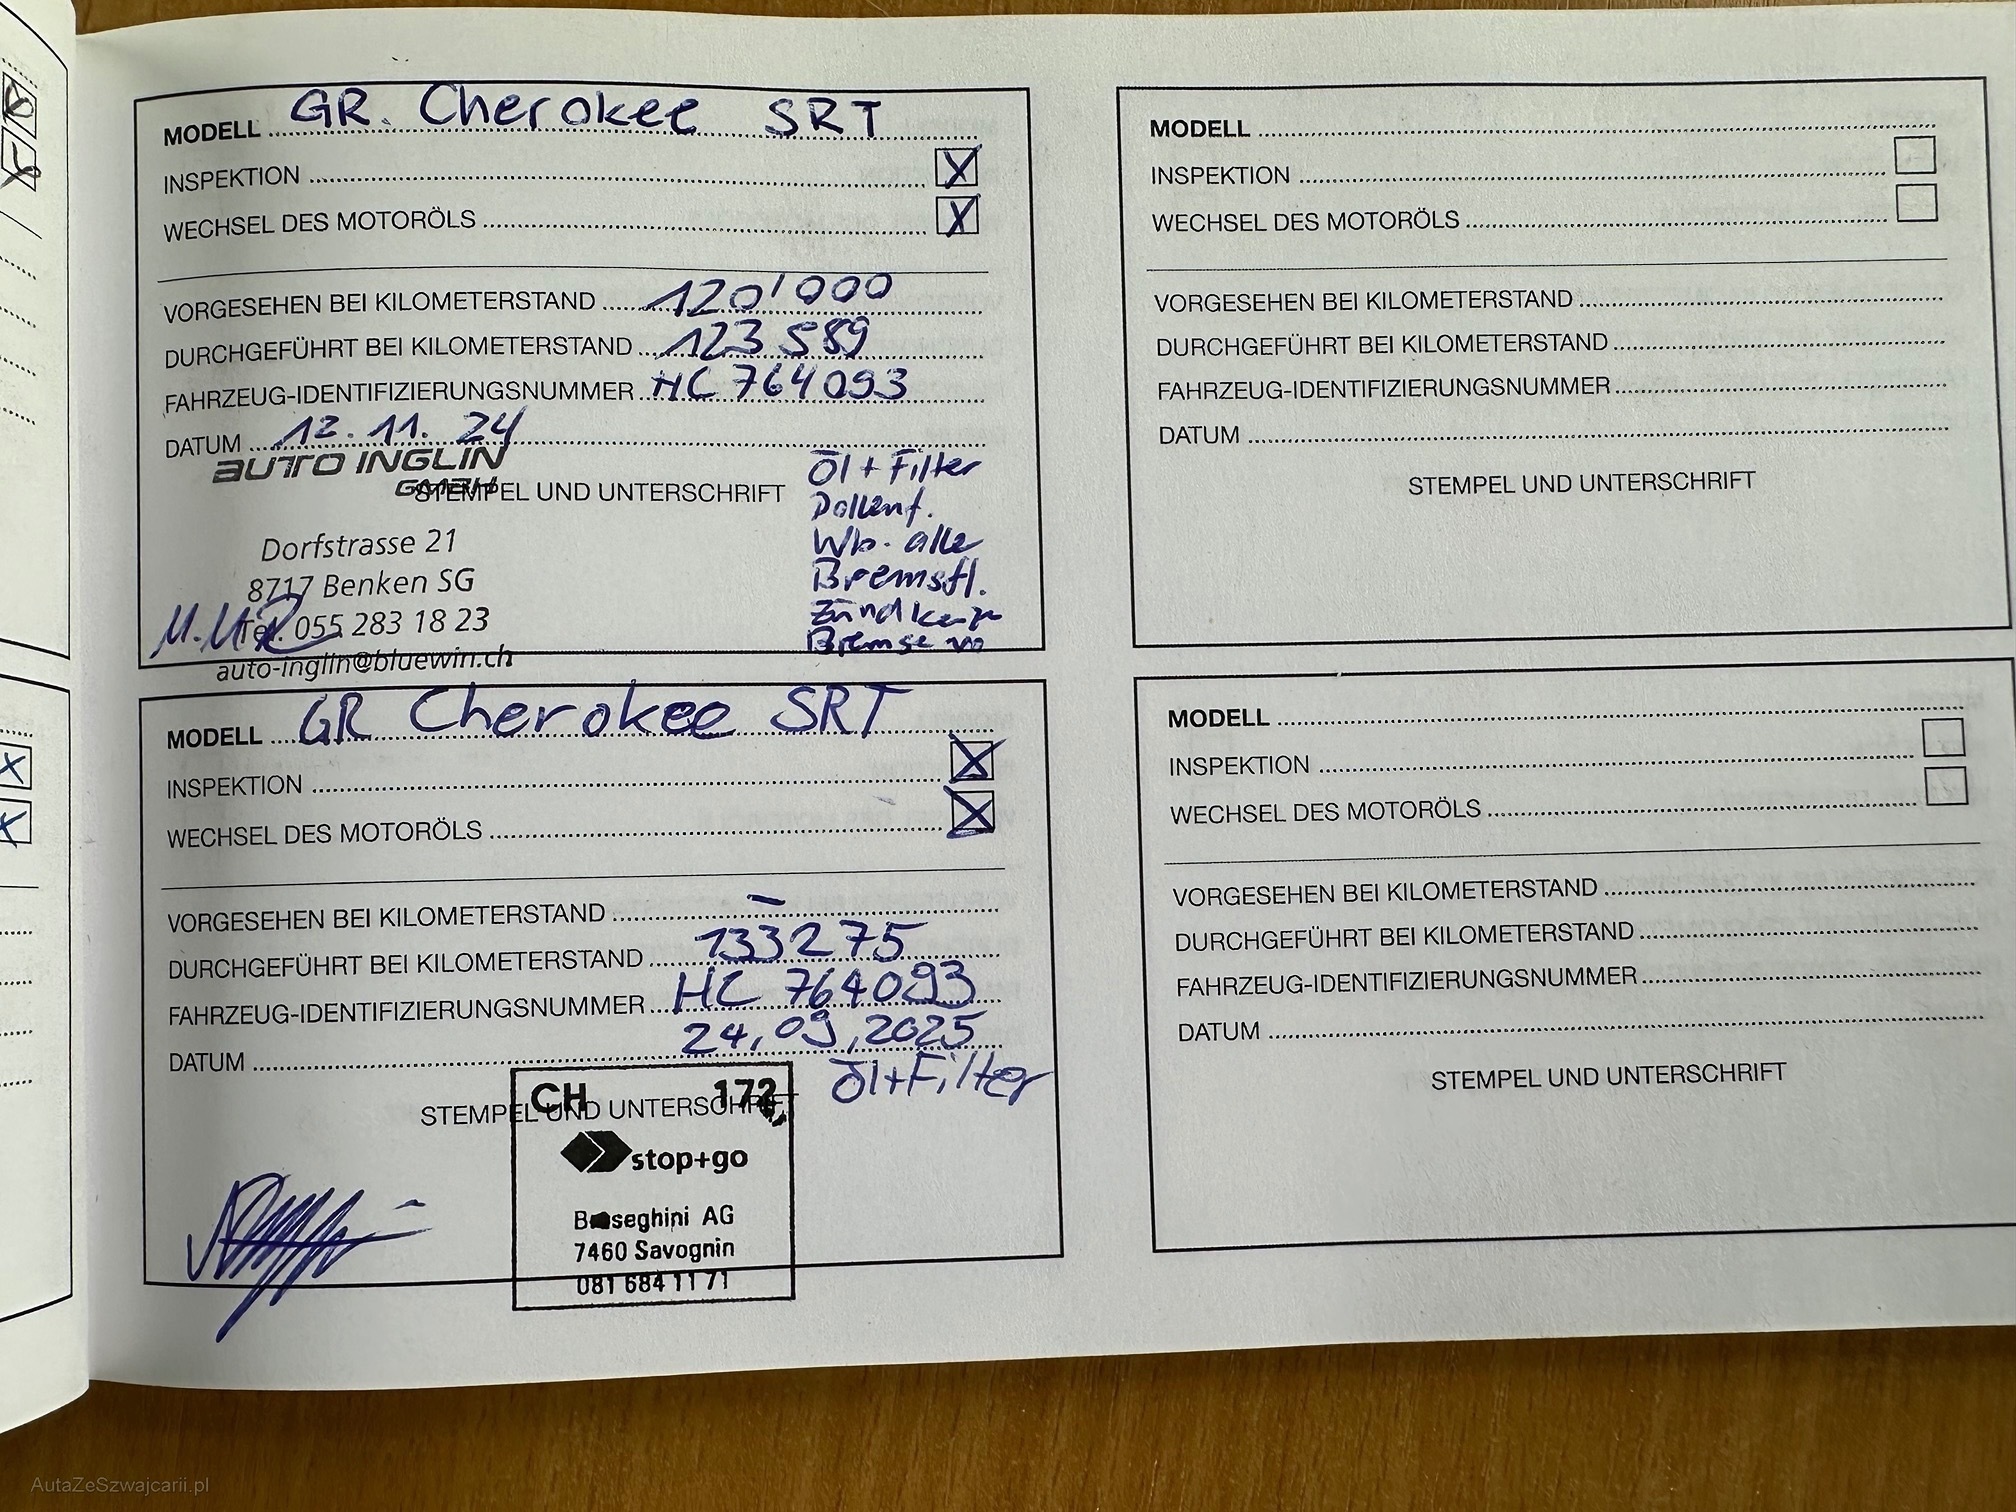 MODELL GR. Cherokee SRT
INSPEKTION X
WECHSEL DES MOTORÖLS X
VORGESEHEN BEI KILOMETERSTAND 120'000
DURCHGEFÜHRT BEI KILOMETERSTAND 123 589
FAHRZEUG-IDENTIFIZIERUNGSNUMMER HC 764093
DATUM 12. 11. 24
AUTO INGLIN
GMBH
STEMPEL UND UNTERSCHRIFT
Dorfstrasse 21
8717 Benken SG
Tel. 055 283 18 23
auto-inglin@bluewin.ch
Öl + Filter
Pollenf.
Wb. alle
Bremsfl.
Zündkerze
Bremse
MODELL GR Cherokee SRT
INSPEKTION X
WECHSEL DES MOTORÖLS X
VORGESEHEN BEI KILOMETERSTAND –
DURCHGEFÜHRT BEI KILOMETERSTAND 133275
FAHRZEUG-IDENTIFIZIERUNGSNUMMER HC 764093
DATUM 24.09.2025
Öl+Filter
STEMPEL UND UNTERSCHRIFT
CH 172
stop+go
AG
7460 Savognin
081 684 11 71
MODELL
INSPEKTION
WECHSEL DES MOTORÖLS
VORGESEHEN BEI KILOMETERSTAND
DURCHGEFÜHRT BEI KILOMETERSTAND
FAHRZEUG-IDENTIFIZIERUNGSNUMMER
DATUM
STEMPEL UND UNTERSCHRIFT
MODELL
INSPEKTION
WECHSEL DES MOTORÖLS
VORGESEHEN BEI KILOMETERSTAND
DURCHGEFÜHRT BEI KILOMETERSTAND
FAHRZEUG-IDENTIFIZIERUNGSNUMMER
DATUM
STEMPEL UND UNTERSCHRIFT
AutaZeSzwajcarii.pl